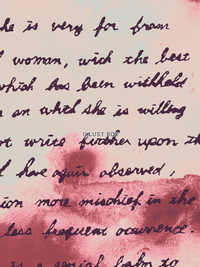 she is very far from
woman, wich the best
which has been withheld
on which she is willing
not write further upon th
have again observed,
ion more mischief in the
less frequent occurrence.
is a genial balm to